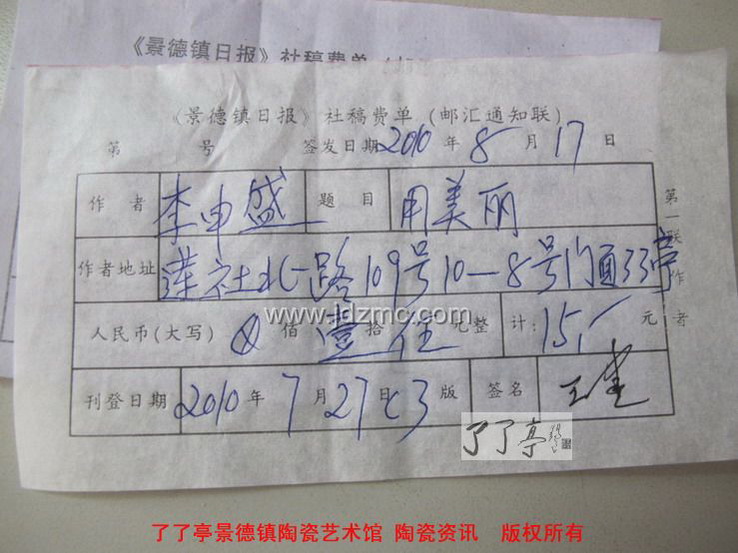 《景德镇日报》社稿费单
《景德镇日报》社稿费单(邮汇通知联)
第 号 签发日期 2010 年 8 月 17 日
作者 李申盛 题目 用美丽
作者地址 莲社北路109号10-8号门面了了亭
www.jdzmc.com
人民币(大写) ⊗ 佰 壹 拾 伍 元整 计: 15.- 元
刊登日期 2010 年 7 月 27 日 C3 版 签名 王建
第一联 作者
了了亭
了了亭景德镇陶瓷艺术馆 陶瓷资讯 版权所有